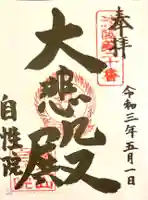 奉拝
令和三年五月一日
大悲殿
自性院